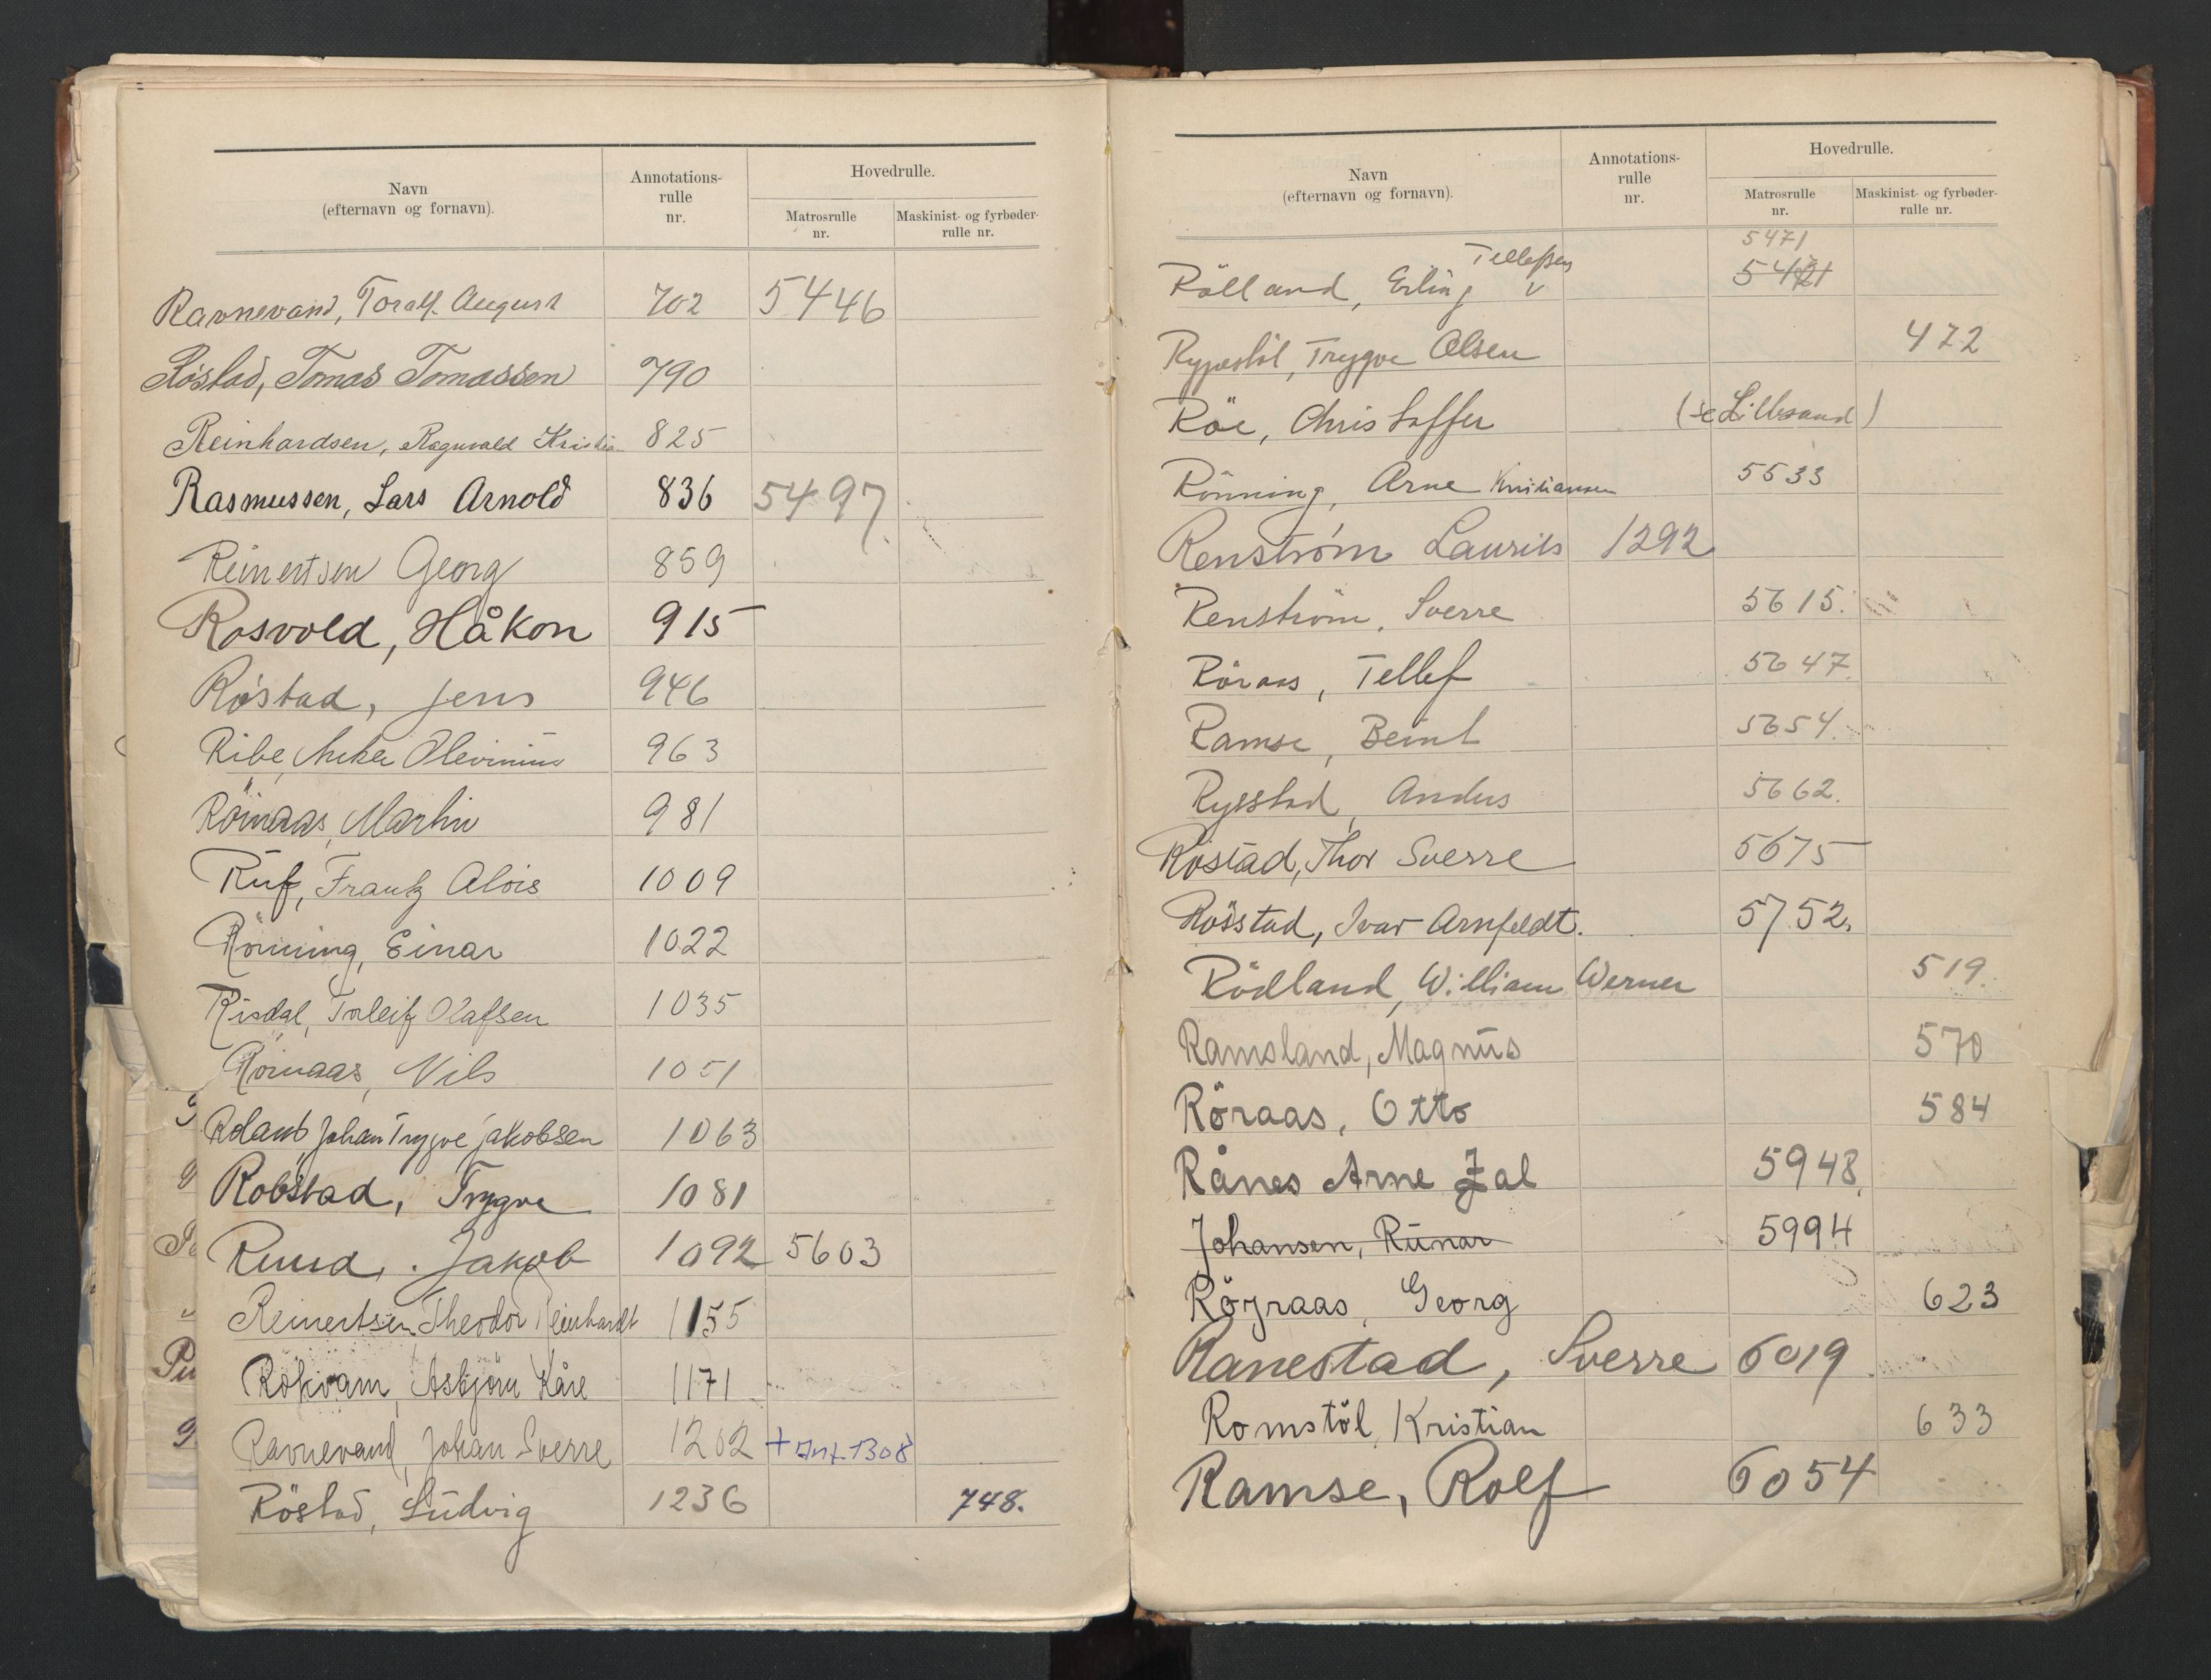 Navn (efternavn og fornavn). Annotations-rulle nr. Hovedrulle. Matrosrulle nr. Maskinist- og fyrbøder-rulle nr.
Ravnevand, Toralf. August 702 5446
Röstad, Tomas Tomassen 790
Reinhardsen, Ragnvald Kristia 825
Rasmussen, Lars Arnold 836 5497
Reinertsen Georg 859
Rosvold, Håkon 915
Röstad, Jens 946
Ribe, Olevinius 963
Martin 981
Ruf, Frantz Alois 1009
Rönning, Einar 1022
Risdal, Torleif Olafsen 1035
Nils 1051
Johan Trygve Jakobsen 1063
Robstad, Trygve 1081
Ruud, Jakob 1092 5603
Reinertsen Theodor Reinhardt 1155
Rökvam, Asbjörn Kåre 1171
Ravnevand, Johan Sverre 1202 + Ant. 1308
Röstad, Ludvig 1236 748.
Navn (efternavn og fornavn). Annotations-rulle nr. Hovedrulle. Matrosrulle nr. Maskinist- og fyrbøder-rulle nr.
Tellefsen 5471
Rölland, Erling v 5421
Rypestöl, Trygve Olsen 472
Röe, Christoffer (se Lillesand)
Rönning, Arne Kristiansen 5533
Renström Laurits 1292
Renström, Sverre 5615.
Röraas, Tellef 5647.
Ramse, Beint 5654.
Rysstad, Anders 5662.
Röstad, Thor Sverre 5675
Rösstad, Ivar Arnfeldt. 5752.
Rödland, William Werner 519.
Ramsland, Magnus 570
Röraas, Otto 584
Rånes Arne Jal 5948.
Johansen, Runar 5994
Röyraas, Georg 623
Ranestad, Sverre 6019
Romstöl, Kristian 633
Ramse, Rolf 6054